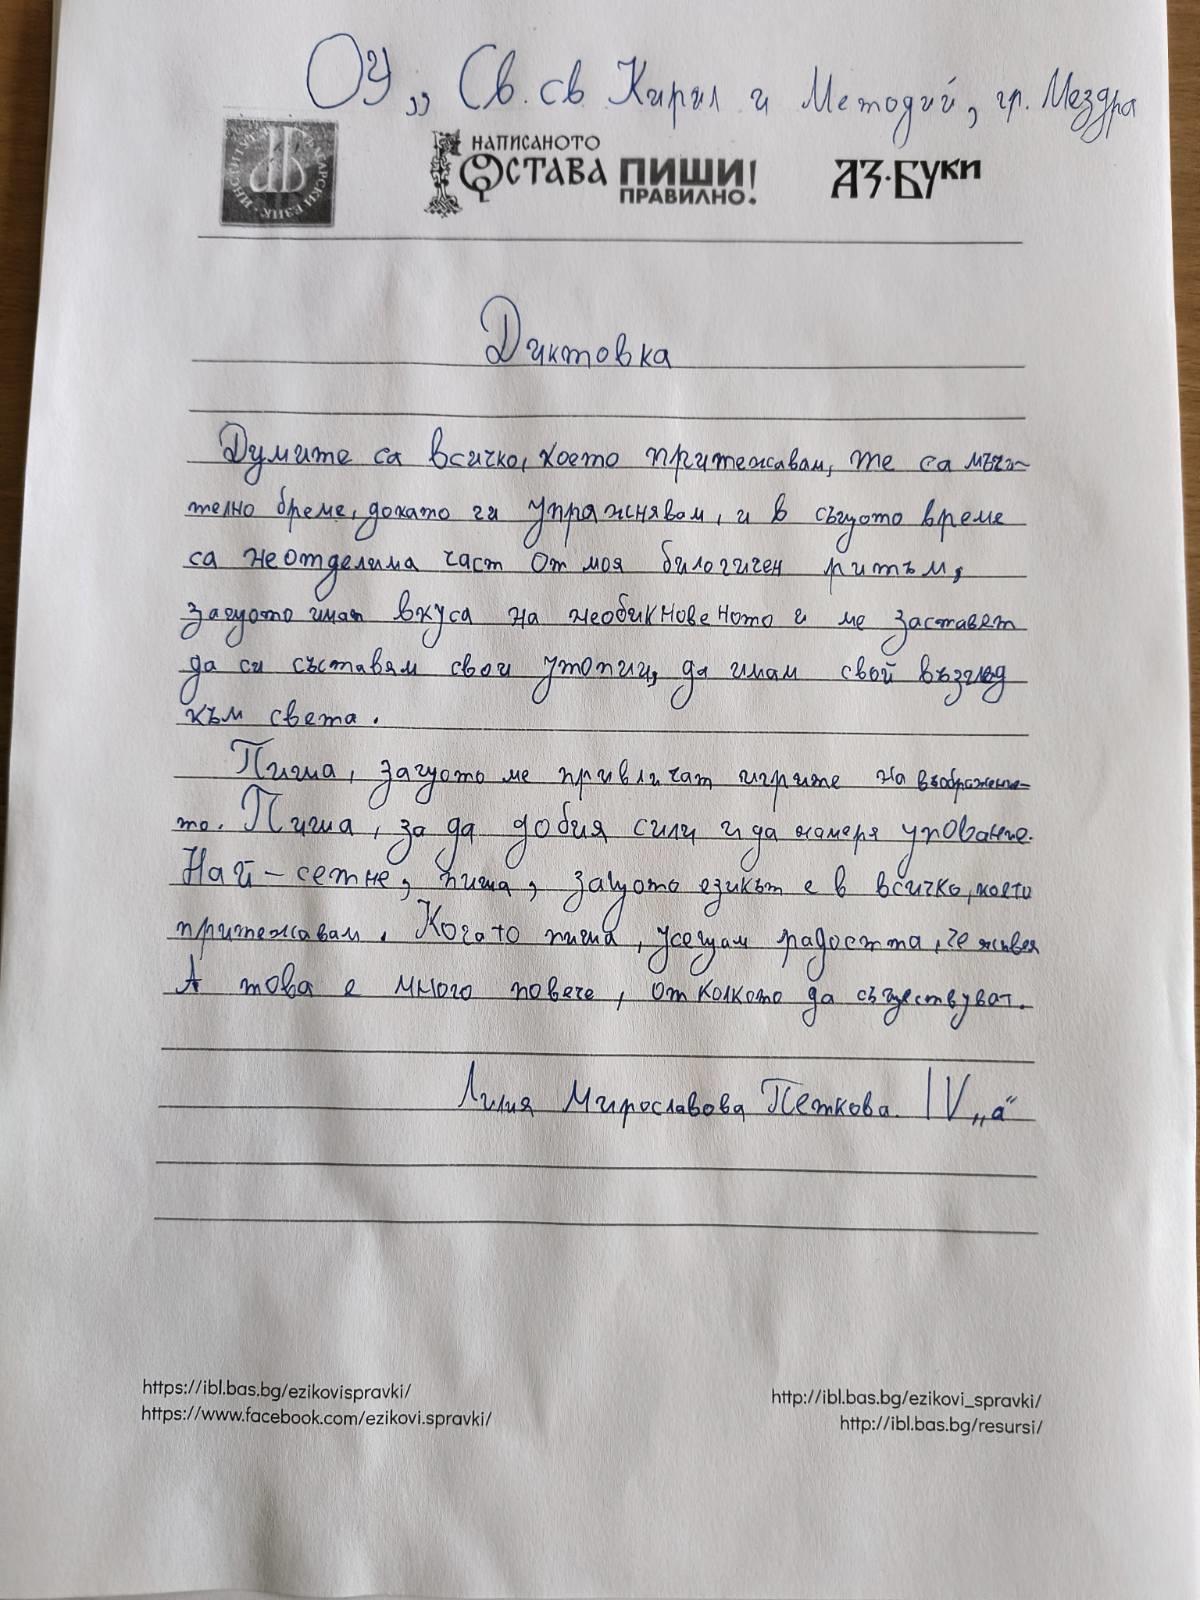 ОУ „Св. св Кирил и Методий, гр. Мездра
НАПИСАНОТО
ОСТАВА ПИШИ
ПРАВИЛНО!
АЗ·БУКИ
Диктовка
Думите са всичко, което притежавам, те са мъчи-
телно бреме, докато ги упражнявам, и в същото време
са неотделима част от моя билогичен ритъм,
защото имат вкуса на необикновеното и ме заставят
да си съставям свои утопии, да имам свой възглед
към света.
Пиша, защото ме привличат игрите на въображение-
то. Пиша, за да добия сили и да намеря упование.
Най-сетне, пиша, защото езикът е в всичко, което
притежавам. Когато пиша, усещам радостта, че живея
А това е много повече, отколкото да съществуват.
Лилия Мирославова Петкова. IV „а“
https://ibl.bas.bg/ezikovispravki/
https://www.facebook.com/ezikovi.spravki/
http://ibl.bas.bg/ezikovi_spravki/
http://ibl.bas.bg/resursi/